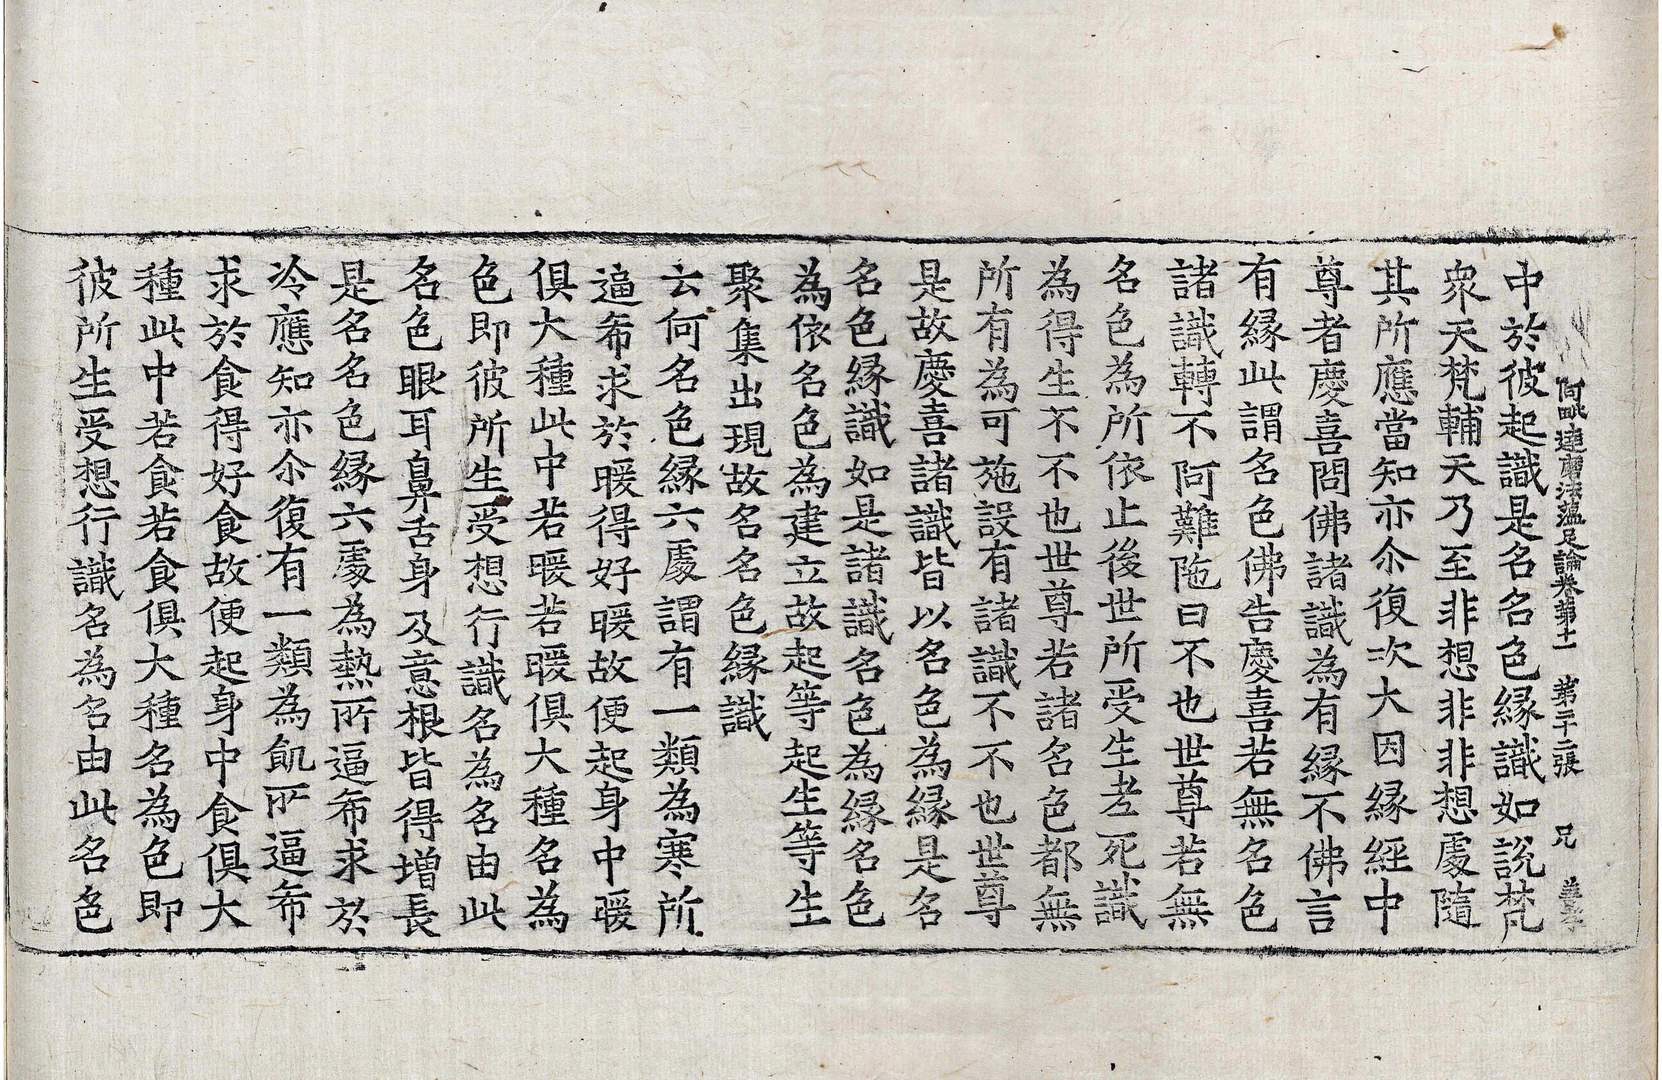 阿毗達磨法蘊足論卷第十一　第二十二張　兄
中於彼起識是名名色緣識如說梵
衆天梵輔天乃至非想非非想處隨
其所應當知亦尒復次大因緣經中
尊者慶喜問佛諸識為有緣不佛言
有緣此謂名色佛告慶喜若無名色
諸識轉不阿難陁曰不也世尊若無
名色為所依止後世所受生老死識
為得生不不也世尊若諸名色都無
所有為可施設有諸識不不也世尊
是故慶喜諸識皆以名色為緣是名
名色緣識如是諸識名色為緣名色
為依名色為建立故起等起生等生
聚集出現故名名色緣識
云何名色緣六處謂有一類為寒所
逼希求於暖得好暖故便起身中暖
俱大種此中若暖若暖俱大種名為
色即彼所生受想行識名為名由此
名色眼耳鼻舌身及意根皆得增長
是名名色緣六處為熱所逼希求於
冷應知亦尒復有一類為飢所逼希
求於食得好食故便起身中食俱大
種此中若食若食俱大種名為色即
彼所生受想行識名為名由此名色